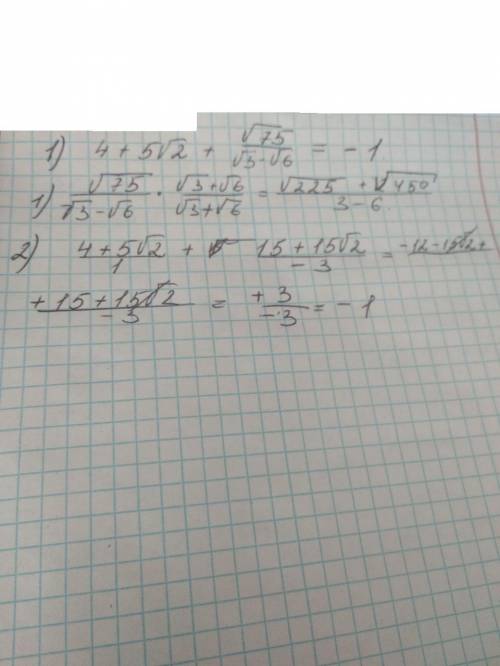 1) 4 + 5√2 + √75/(√3 - √6) = - 1
1) √75/(√3 - √6) · (√3 + √6)/(√3 + √6) = (√225 + √450)/(3 - 6)
2) (4 + 5√2)/1 + (15 + 15√2)/(-3) = -12 - 15√2 +
(+ 15 + 15√2)/(-3) = (+3)/(-3) = - 1